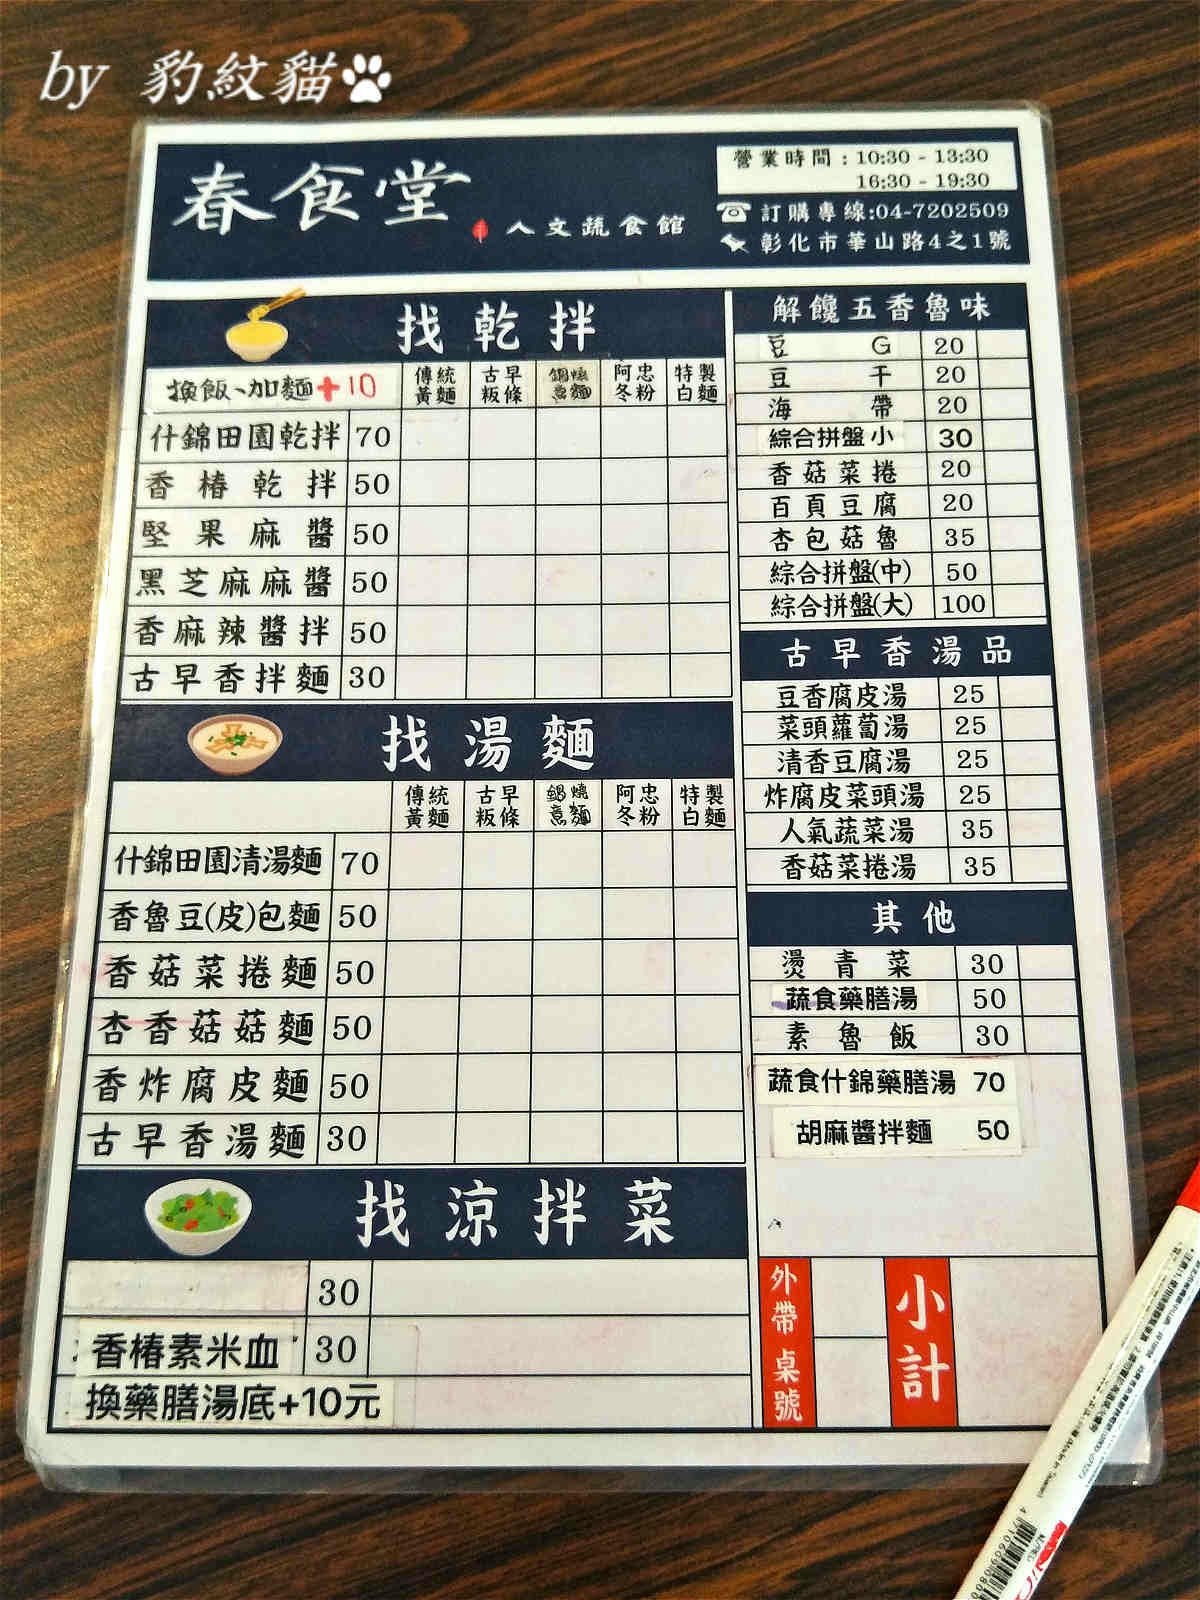 by 豹紋貓
春食堂
人文蔬食館
營業時間：10:30 - 13:30
16:30 - 19:30
訂購專線:04-7202509
彰化市華山路4之1號
找乾拌
換飯、加麵+10
傳統黃麵 古早粄條 鍋燒意麵 阿忠冬粉 特製白麵
什錦田園乾拌 70
香椿乾拌 50
堅果麻醬 50
黑芝麻麻醬 50
香麻辣醬拌 50
古早香拌麵 30
找湯麵
傳統黃麵 古早粄條 鍋燒意麵 阿忠冬粉 特製白麵
什錦田園清湯麵 70
香魯豆(皮)包麵 50
香菇菜捲麵 50
杏香菇菇麵 50
香炸腐皮麵 50
古早香湯麵 30
找涼拌菜
30
香椿素米血 30
換藥膳湯底+10元
解饞五香魯味
豆G 20
豆干 20
海帶 20
綜合拼盤小 30
香菇菜捲 20
百頁豆腐 20
杏包菇魯 35
綜合拼盤(中) 50
綜合拼盤(大) 100
古早香湯品
豆香腐皮湯 25
菜頭蘿蔔湯 25
清香豆腐湯 25
炸腐皮菜頭湯 25
人氣蔬菜湯 35
香菇菜捲湯 35
其他
燙青菜 30
蔬食藥膳湯 50
素魯飯 30
蔬食什錦藥膳湯 70
胡麻醬拌麵 50
外帶 桌號
小計